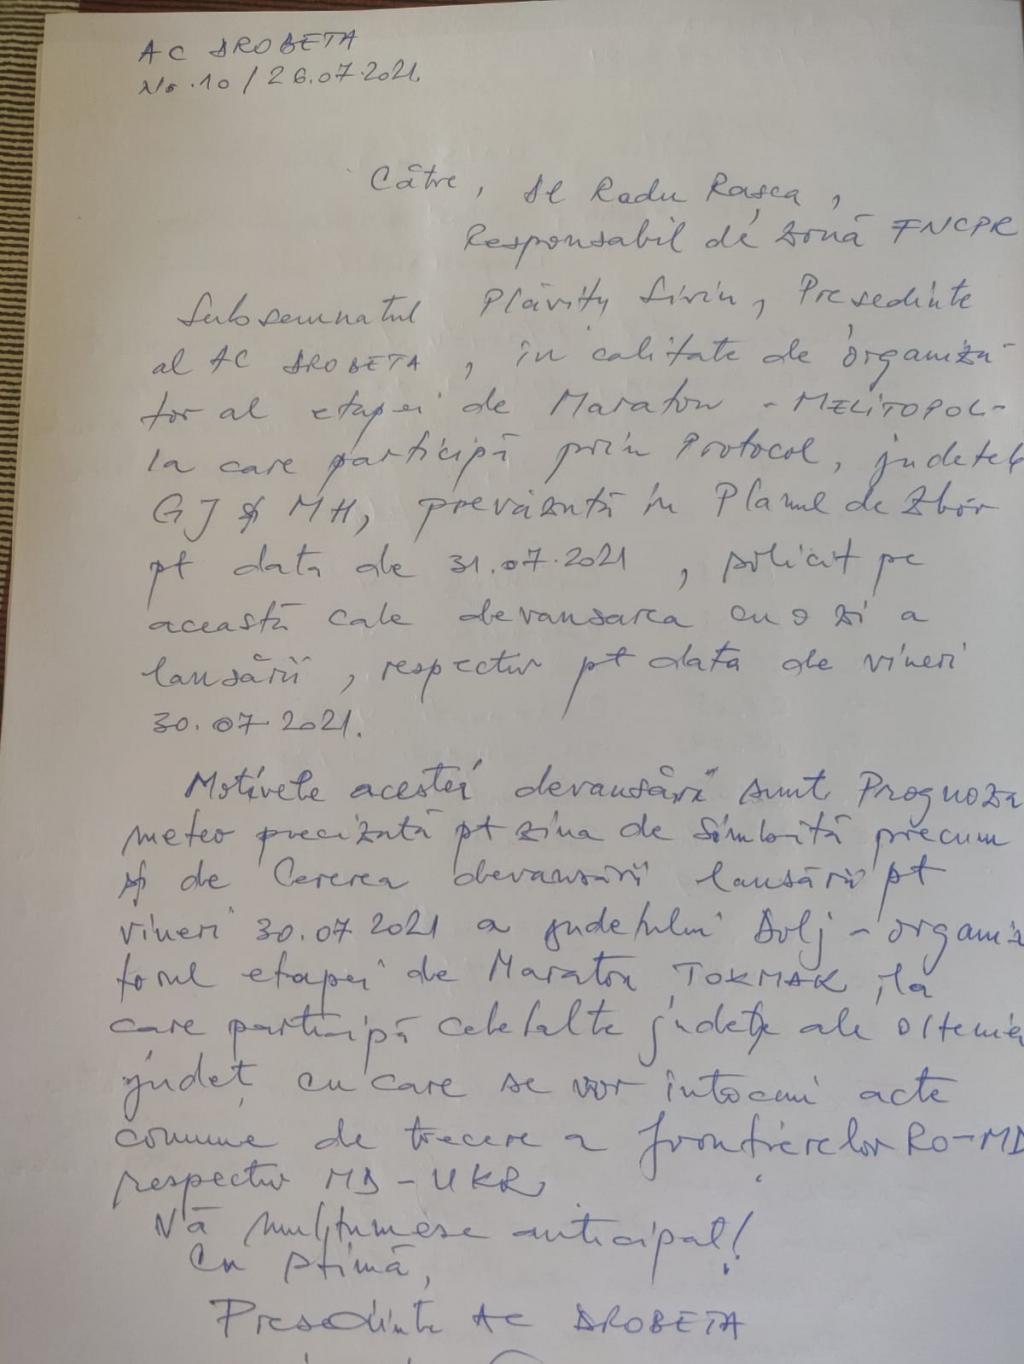 AC DROBETA
Nr. 10 / 26.07.2021
Către, Dl Radu Rașca,
Responsabil de zonă FNCPR
Subsemnatul Plăvity Livin, Președinte
al AC DROBETA, în calitate de organiza
tor al etapei de Maraton - MELITOPOL-
la care participă prin Protocol, judetele
GJ și MH, prevăzută în Planul de Zbor
pt data de 31.07.2021, solicit pe
această cale devansarea cu o zi a
lansării, respectiv pt data de vineri
30.07.2021.
Motivele acestei devansării sunt Prognoza
meteo precizată pt ziua de Sîmbătă precum
și de Cererea devansării lansării pt
vineri 30.07.2021 a judetului Dolj - organiza
torul etapei de Maraton TOKMAK, la
care participă celelalte județe ale Olteniei
județ, cu care se vor întocmi acte
comune de trecere a frontierelor RO-MD
respectiv MD-UKR
Vă mulțumesc anticipat!
Cu stimă,
Presedinte AC DROBETA